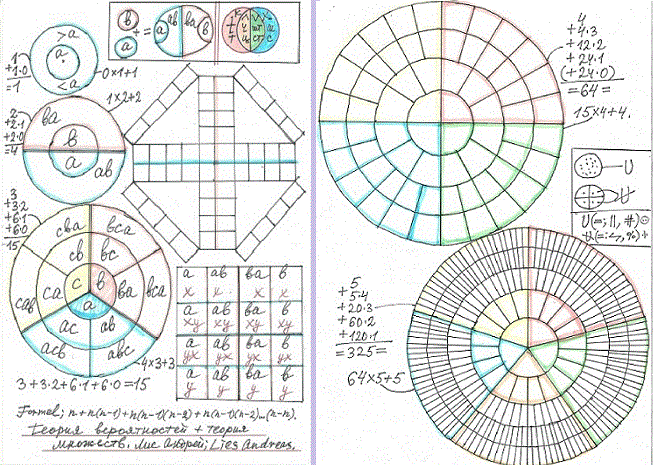 1
+1·0
=1
>a
a
<a
0×1+1
1×2+2
2
+2·1
+2·0
=4
ba
b
a
ab
b
a
+
=
a
ab
ba
b
3
+3·2
+6·1
+6·0
15
cba
bca
cb
bc
cab
ca
c
b
ba
bca
a
ac
ab
acb
abc
4×3+3
3+3·2+6·1+6·0=15
a ab ba b
x x x x
a ab ba b
xy xy xy xy
a ab ba b
yx yx yx yx
a ab ba b
y y y y
Formel; n+n(n-1)+n(n-1)(n-2)+n(n-1)(n-2)...(n-n).
Теория вероятностей + теория
множеств. Лис Андрей; Lies Andreas.
4
+4·3
+12·2
+24·1
(+24·0)
=64=
15×4+4.
U
U
U(=; ||, #)
5
+5·4
+20·3
+60·2
+120·1
=325=
64×5+5